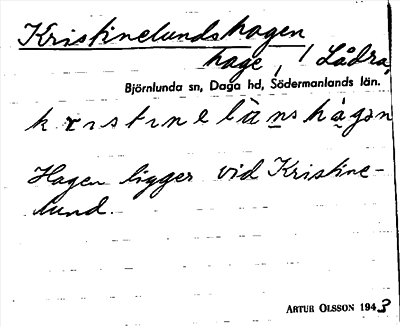 Kristinelundshagen
hage, / Lådra,
Björnlunda sn, Daga hd, Södermanlands län.
Hagen ligger vid Kristine-
lund.
ARTUR OLSSON 1943